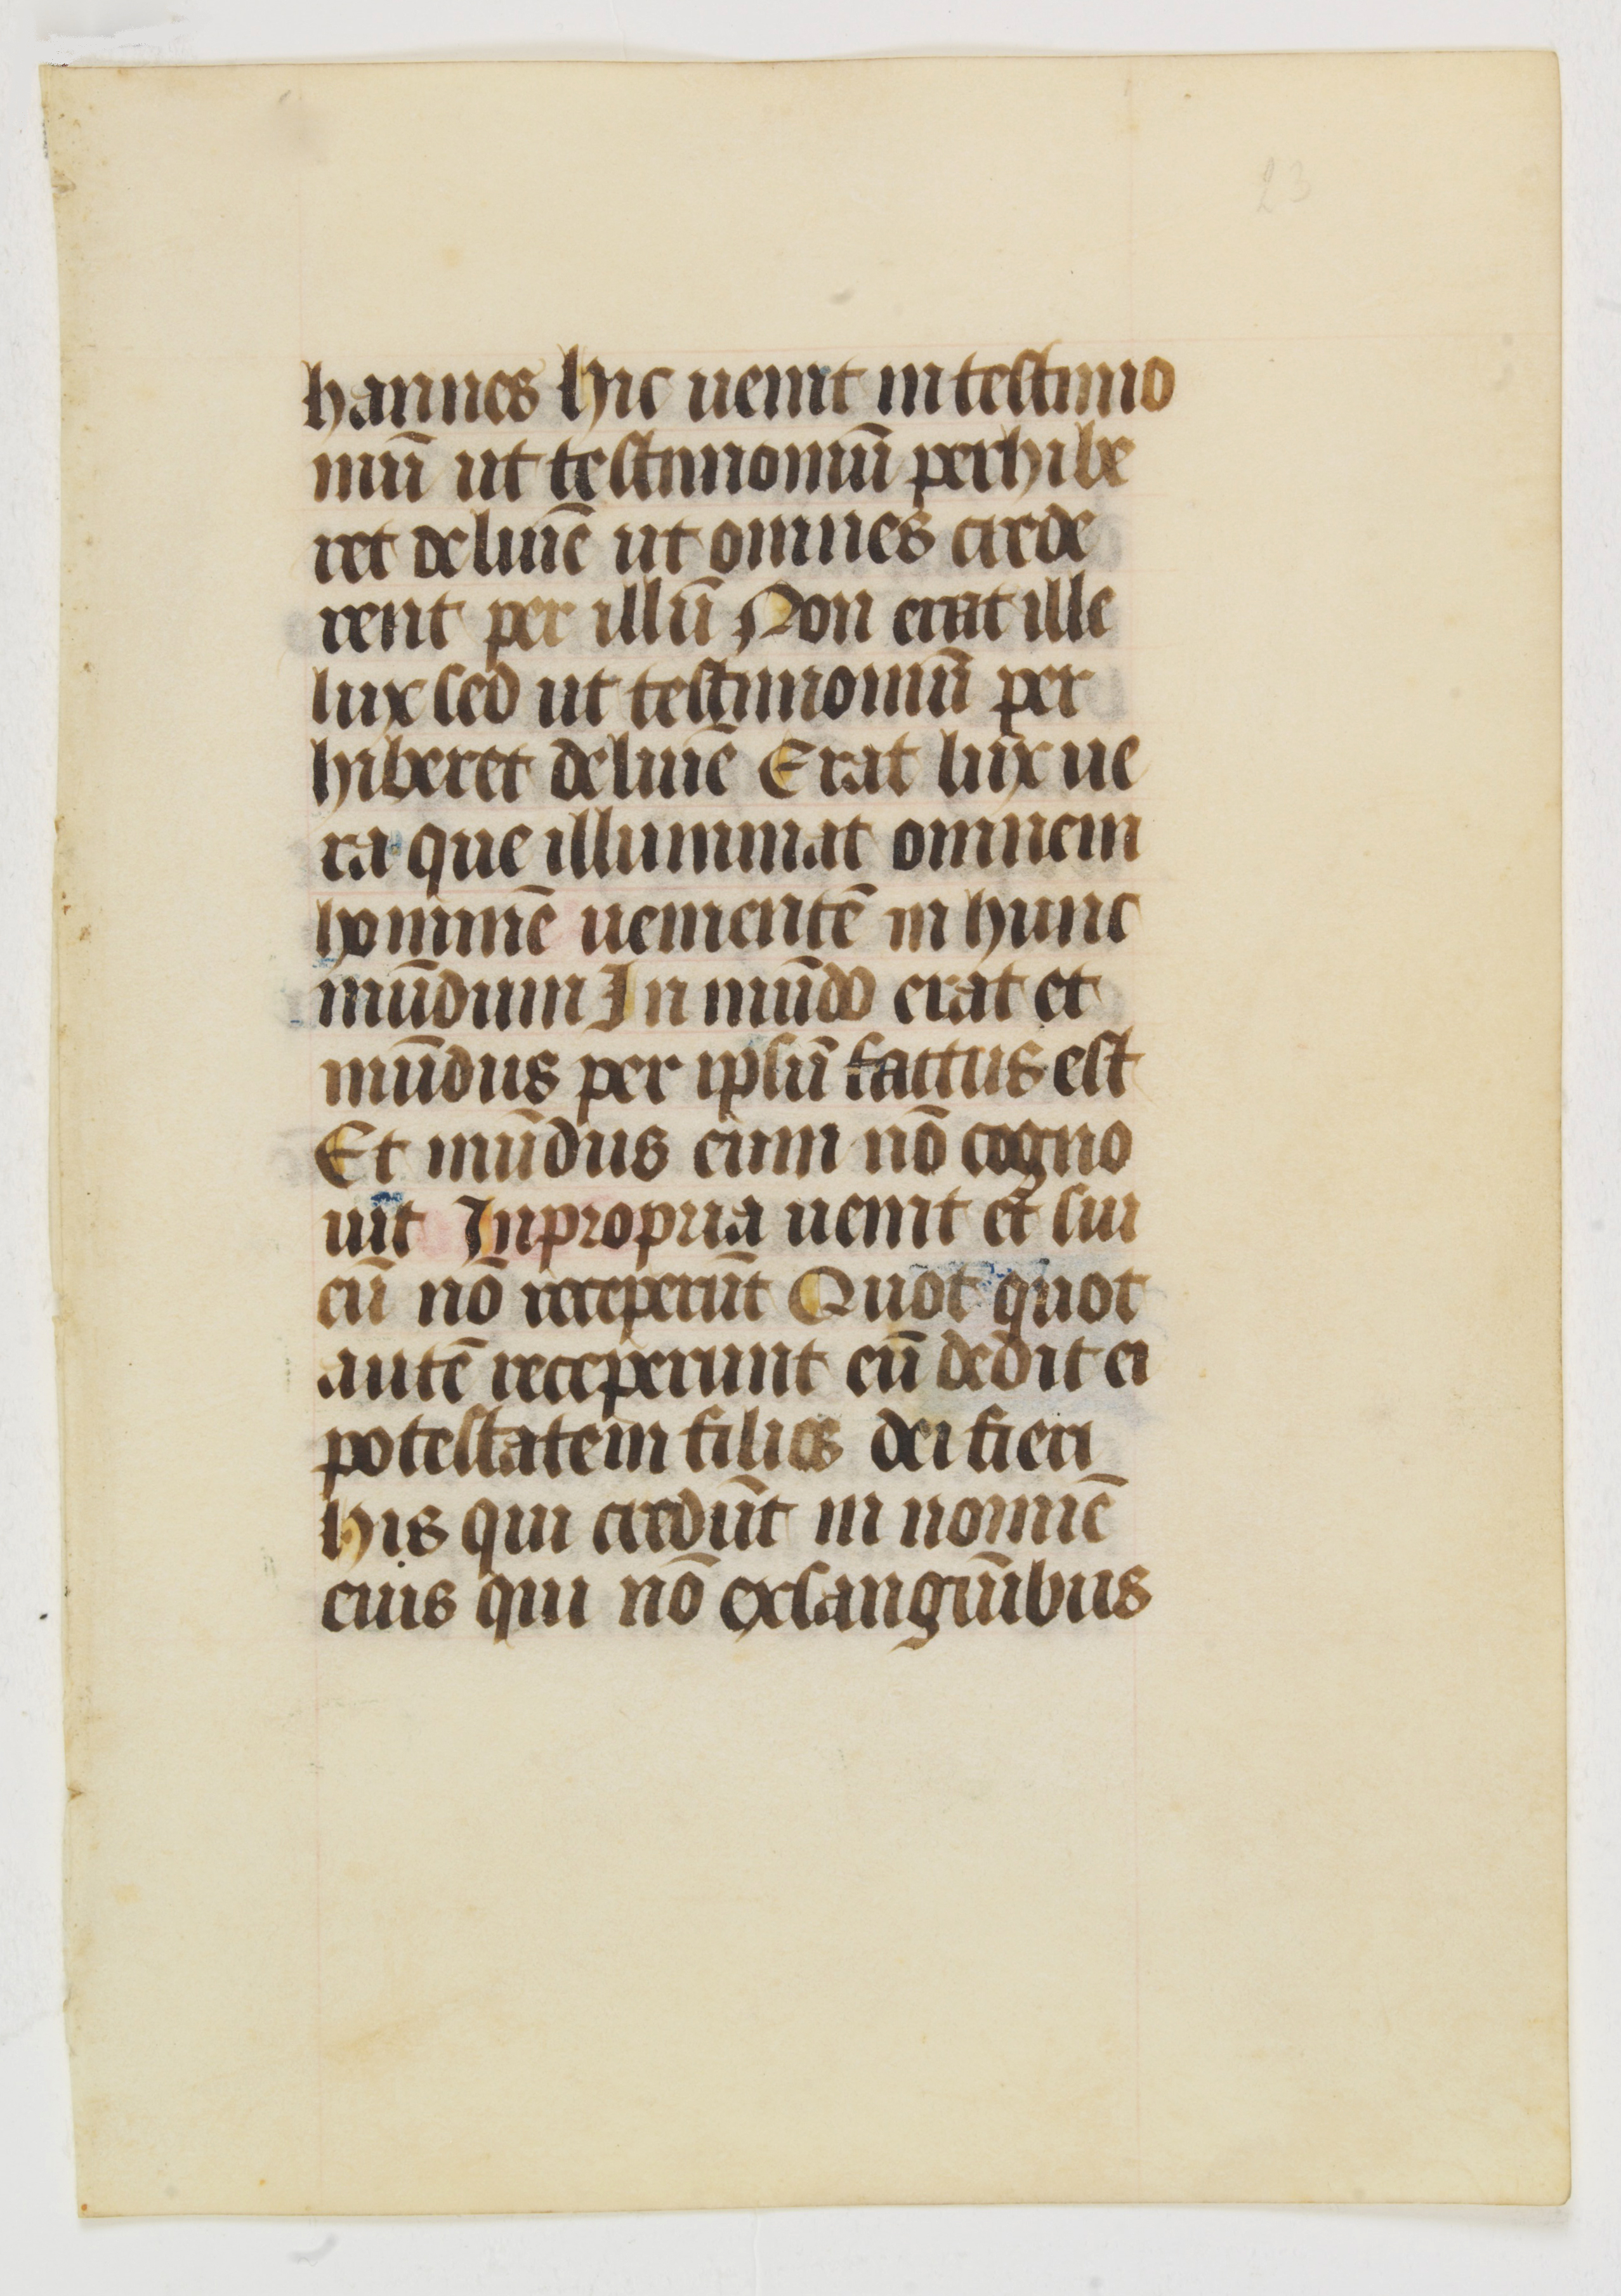 23
hannes hic uenit in testimo
niū ut testimoniū perhibe
ret de lumē ut omnes crede
rent per illū Non erat ille
lux sed ut testimoniū per
hiberet de lumē Erat lux ue
ra que illuminat omnem
hominē uenientē in hunc
mūdum In mūdo erat et
mūdus per ipsū factus est
Et mūdus eum nō cogno
uit In propria uenit et sui
eū nō receperūt Quot quot
autē receperunt eū dedit ei
potestatem filios dei fieri
his qui credūt in nomīe
eius qui nō ex sanguībus